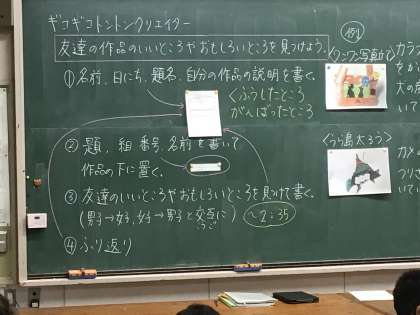 ギコギコトントンクリエイター
友達の作品のいいところやおもしろいところを見つけよう。
①名前、日にち、題名、自分の作品の説明を書く。
くふうしたところ
がんばったところ
②題、組 番号、名前を書いて
作品の下に置く。
③友達のいいところやおもしろいところを見つけて書く。
(男子→女子、女子→男子と交互に)
こうご
〜2:35
④ふり返り
例
<うら島太ろう>